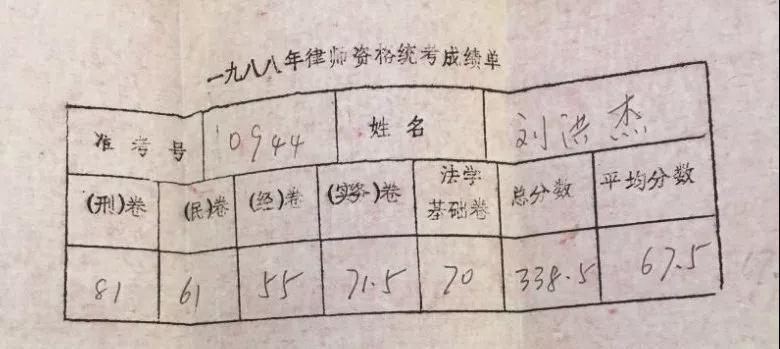 一九八八年律师资格统考成绩单
准考号 0944 姓名 刘洪杰
(刑)卷 (民)卷 (经)卷 (实务)卷 法学基础卷 总分数 平均分数
81 61 55 71.5 70 338.5 67.5